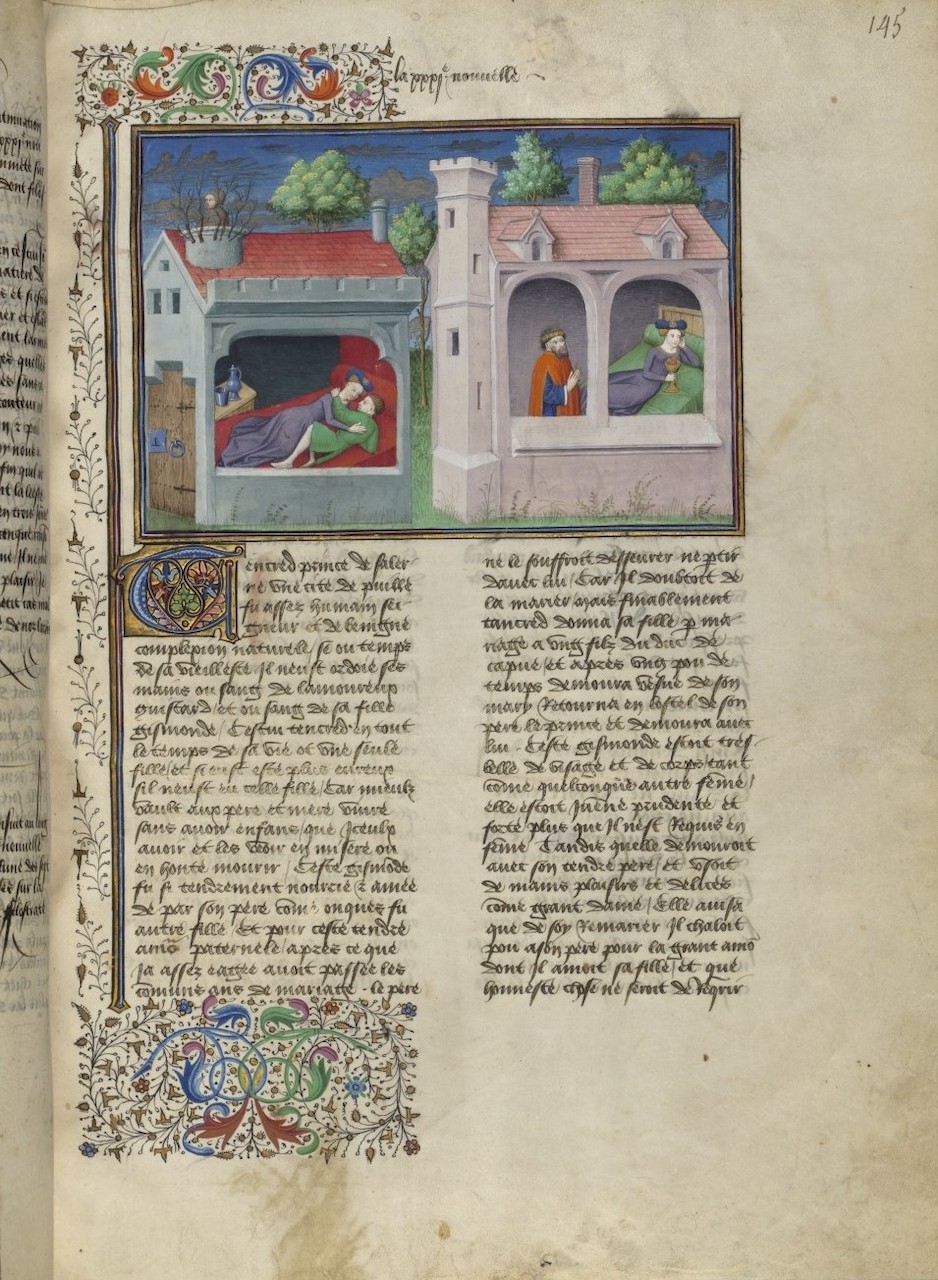 145
la xxxje nouvelle
Tencred prince de saler
ne vne cite de puille
fu assez humain sei
gneur et de benigne
complexion naturele / se ou temps
de sa vieillesse Il neust ordoie ses
mains ou sang de lamoureux
guistard / et ou sang de sa fille
gismonde / Cestui tencred en tout
le temps de sa vie ot vne seule
fille / et si eust este plus eureux
sil neust eu celle fille / Car mieulx
vault aux pere et mere viure
sans auoir enfans / que Iceulx
auoir et les veoir en misere ou
en honte mourir / Ceste gismōde
fu si tendrement nourrie z amee
de par son pere com̄e onques fu
autre fille / Et pour ceste tendre
amō paternele apres ce que
Ja assez eagee auoit passee les
cōmuns ans de mariage . le pere
ne le souffroit desseurer ne ptir
dauec lui / Car Il doubtoit de
la marier mais finablement
tancred donna sa fille p ma
riage a vng filz du duc de
capue et apres vng pou de
temps demoura vesue de son
mary / Retourna en lostel de son
pere le prince et demoura auec
lui . Ceste gismonde estoit tres
belle de visage et de corps / tant
cōme quelconque autre fēme /
elle estoit Juene prudente et
forte plus que Il nest Requis en
fēme Tandis quelle demouroit
auec son tendre pere / et vsoit
de mains plaisirs et delices
cōme grant dame / Elle auisa
que de soy Remarier Il chaloit
pou a son pere pour la grant amō
dont Il amoit sa fille / et que
honneste chose ne seroit de Reqrir